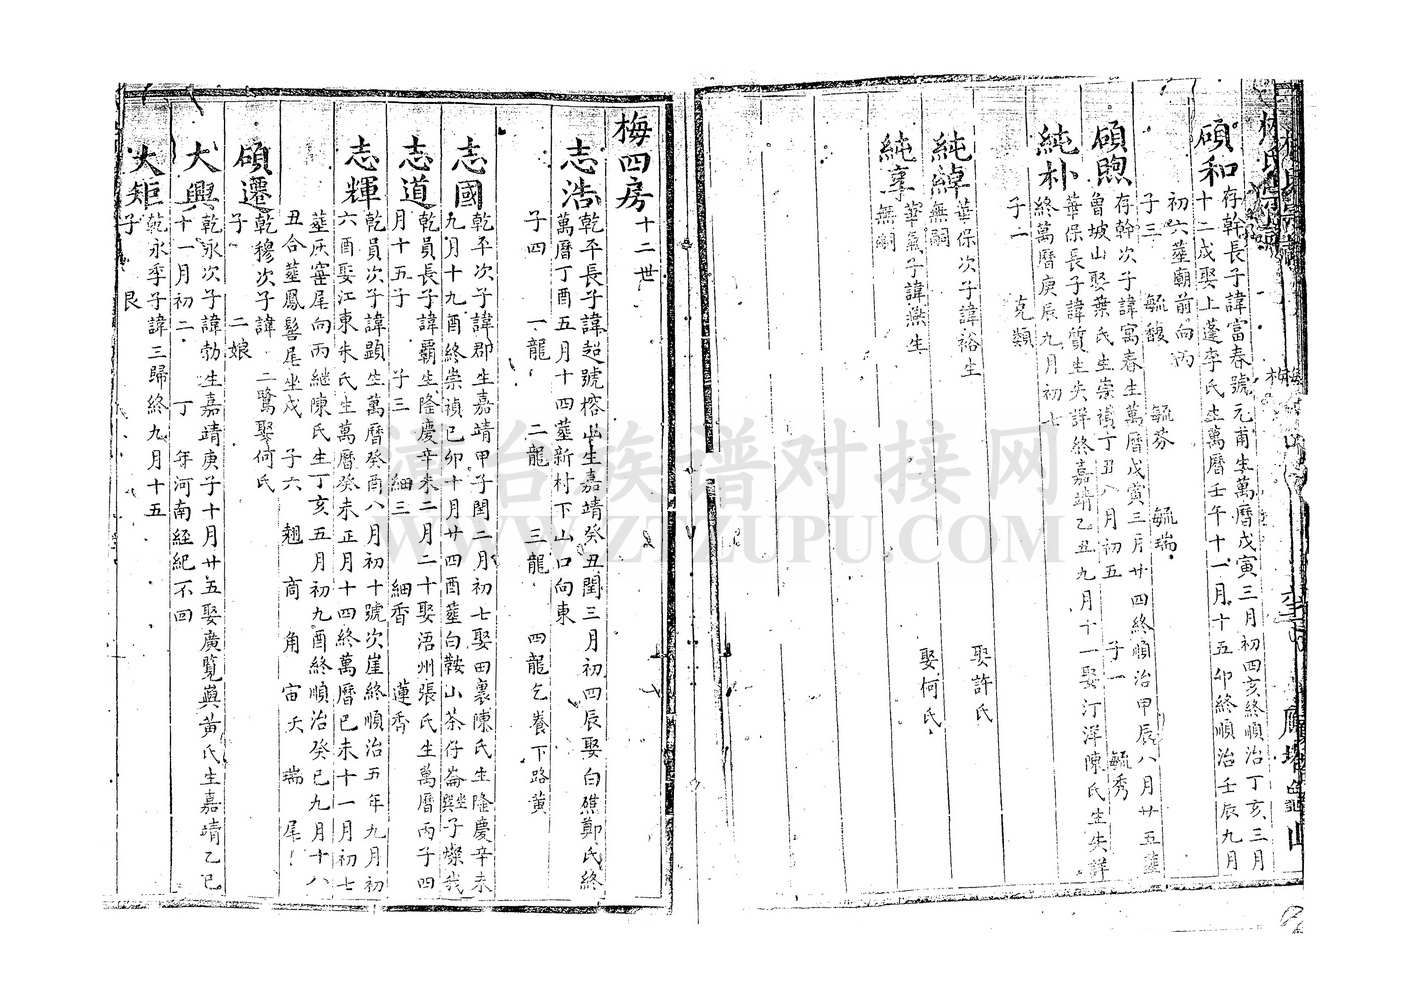 碩和
存幹長子諱富春號元甫生萬曆戊寅三月初四亥終順治丁亥三月
十二戌娶上蓬李氏生萬曆壬午十一月十五卯終順治壬辰九月
初六塟廟前向丙
子三 毓馥 毓芬 毓瑞
碩煦
存幹次子諱寓春生萬曆戊寅三月廿四終順治甲辰八月廿五塟
魯坡山娶葉氏生崇禎丁丑八月初五 子一 毓秀
純朴
華保長子諱質生失詳終嘉靖乙丑九月十一娶汀洋陳氏生失詳
終萬曆庚辰九月初七
子二 克類
純綽
華保次子諱裕生 娶許氏
無嗣
純享
華氣子諱燕生 娶何氏
無嗣
梅四房
十二世
志浩
乾平長子諱超號榕山生嘉靖癸丑閏三月初四辰娶白礁鄭氏終
萬曆丁酉五月十四塟新村下山口向東
子四 一龍 二龍 三龍 四龍乞養下路黃
志國
乾平次子諱郡生嘉靖甲子閏二月初七娶田裏陳氏生隆慶辛未
九月十九酉終崇禎己卯十月廿四酉塟白鞍山茶仔崙坐巽子燦我
志道
乾員長子諱霸生隆慶辛未二月二十娶浯州張氏生萬曆丙子四
月十五子 子三 細三 細香 蓮香
志輝
乾員次子諱顯生萬曆癸酉八月初十號次崖終順治五年九月初
六酉娶江東朱氏生萬曆癸未正月十四終萬曆己未十一月初七
塟灰窰尾向丙繼陳氏生丁亥五月初九酉終順治癸巳九月十八
丑合塟鳳髻尾坐戌 子六 翹 商 角 宙夭 瑞 尾
碩遷
乾穆次子諱 二鷺娶何氏
子 二娘
大興
乾永次子諱勃生嘉靖庚子十月廿五娶廣覽輿黃氏生嘉靖乙巳
十一月初二 丁 年河南經紀不回
大矩
乾永季子諱三歸終九月十五
子 艮
漳台族谱对接网
WWW.ZTZUPU.COM